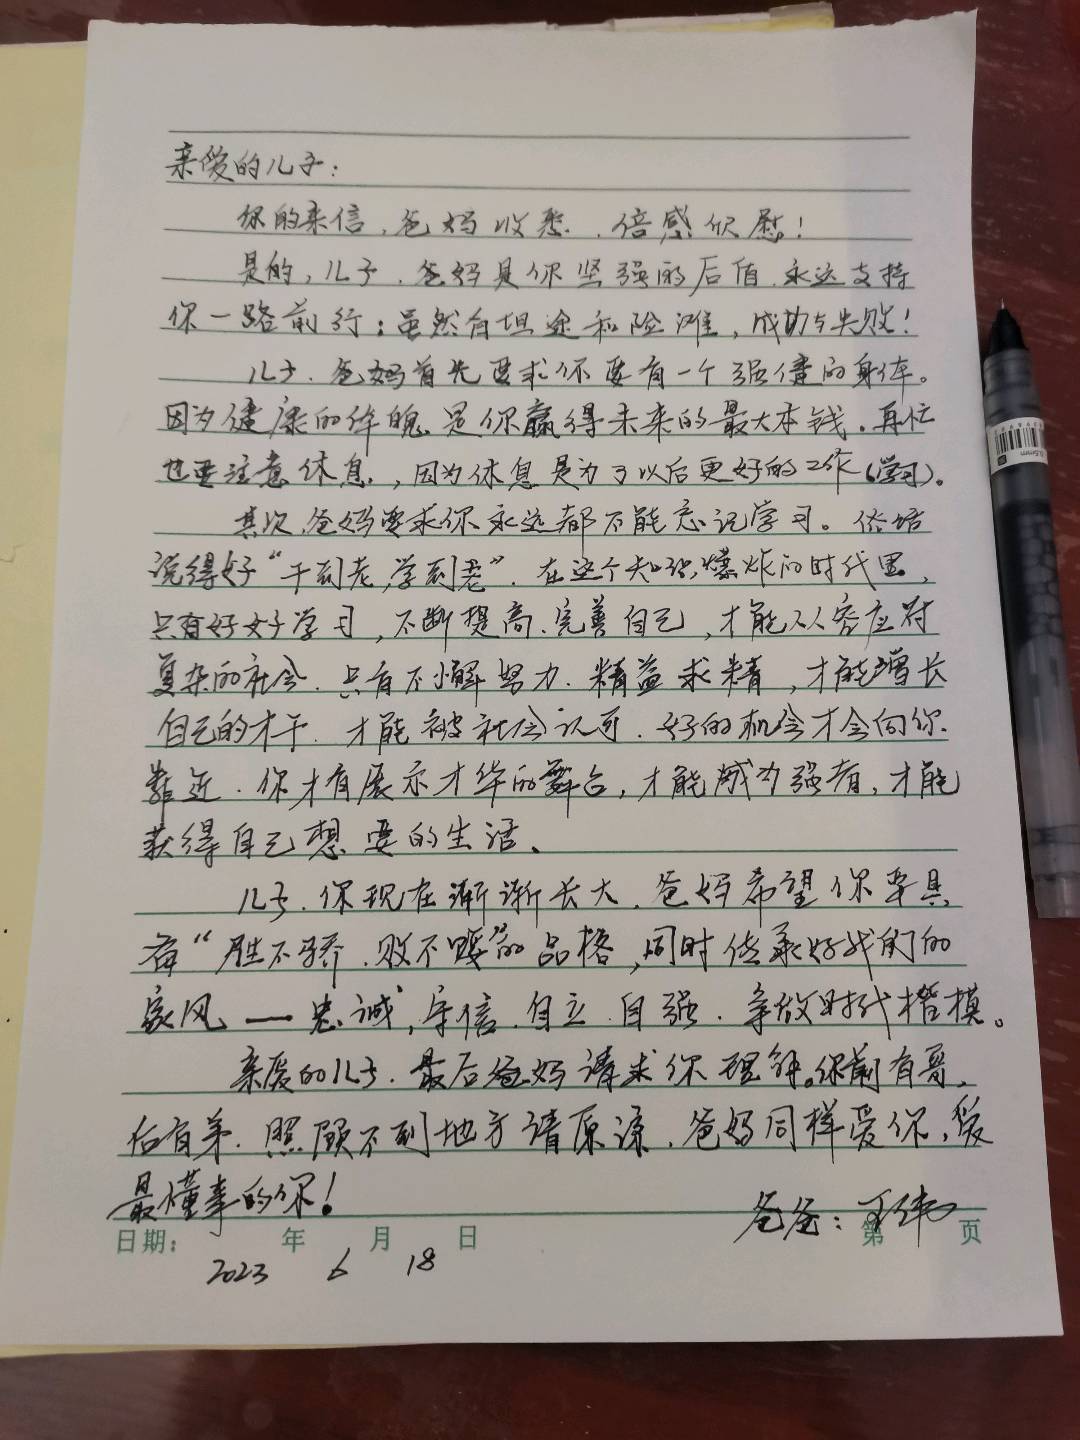 亲爱的儿子:
你的来信,爸妈收悉,倍感欣慰!
是的,儿子,爸妈是你坚强的后盾,永远支持
你一路前行;虽然有坦途和险滩,成功与失败!
儿子,爸妈首先要求你要有一个强健的身体。
因为健康的体魄是你赢得未来的最大本钱。再忙
也要注意休息,因为休息是为了以后更好的工作(学习)。
其次,爸妈要求你永远都不能忘记学习。俗话
说得好“干到老,学到老”,在这个知识爆炸的时代里,
只有好好学习,不断提高、完善自己,才能从容应对
复杂的社会,只有不懈努力,精益求精,才能增长
自己的才干,才能被社会认可,好的机会才会向你
靠近,你才有展示才华的舞台,才能成为强者,才能
获得自己想要的生活、
儿子,你现在渐渐长大,爸妈希望你要具
有“胜不骄,败不馁”的品格,同时传承好我们的
家风——忠诚,守信,自立,自强,争做时代楷模。
亲爱的儿子,最后爸妈请求你理解。你前有哥,
后有弟,照顾不到地方请原谅,爸妈同样爱你,爱
最懂事的你!
爸爸:王伟
日期: 年 月 日 第 页
2023 6 18
0.5mm